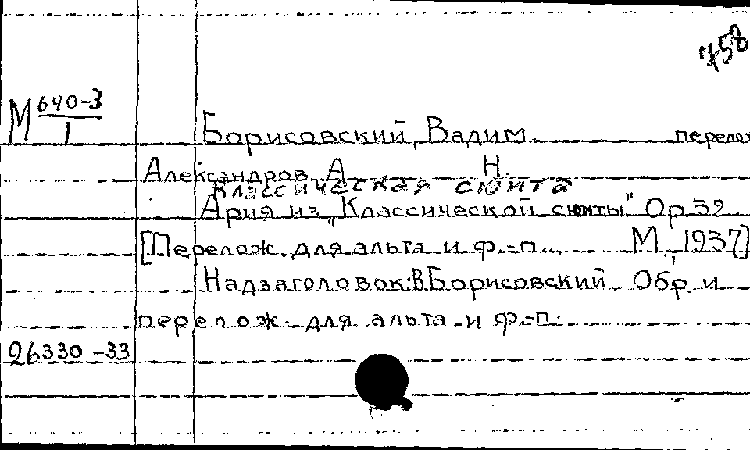 758
М 640-3
1
Борисовский, Вадим перелож
Александров А. Н.
Классическая сюита
Ария из „Классической сюиты" Ор 32
[Перелож. для альта и ф.-п. М., 1937]
Надзаголовок: В. Борисовский. Обр. и
перелож. для альта и ф.-п.
26330-33